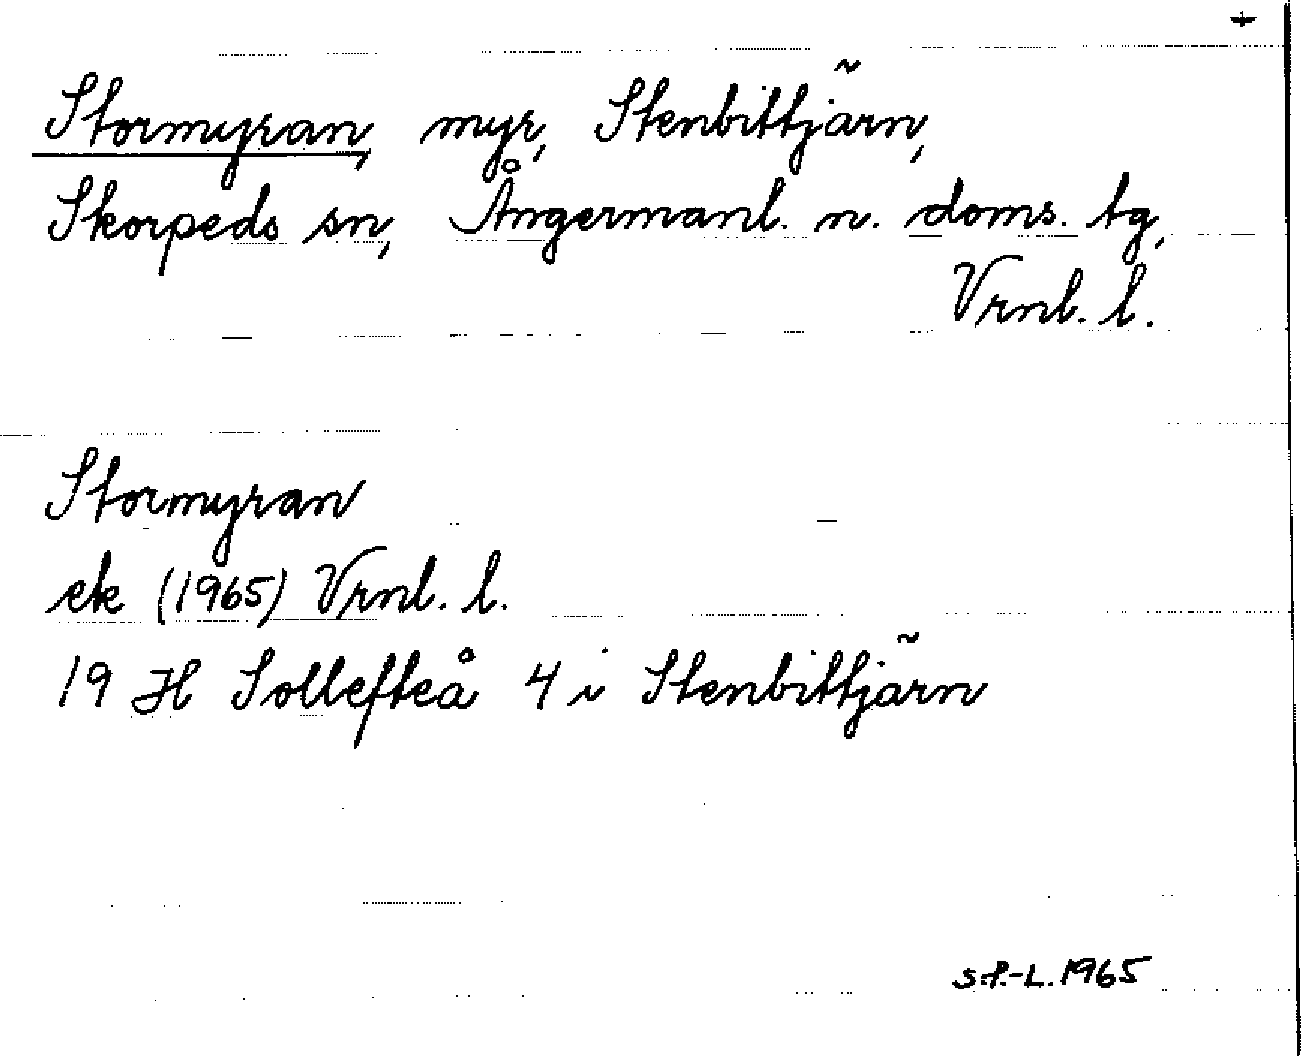 Stormyran, myr, Stenbittjärn,
Skorpeds sn, Ångermanl. n. doms. tg,
Vrnl. l.
Stormyran
ek (1965) Vrnl. l.
19 H Sollefteå 4 i Stenbittjärn
S.P.-L. 1965